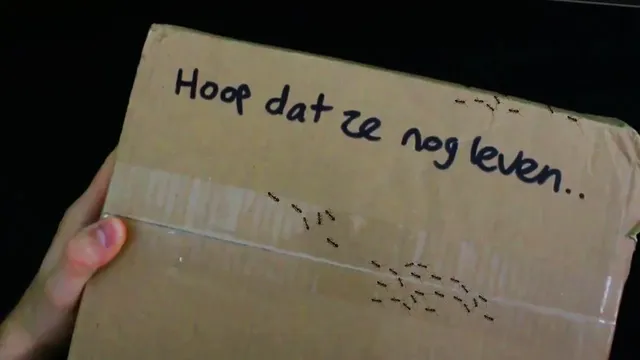 Hoop dat ze nog leven..